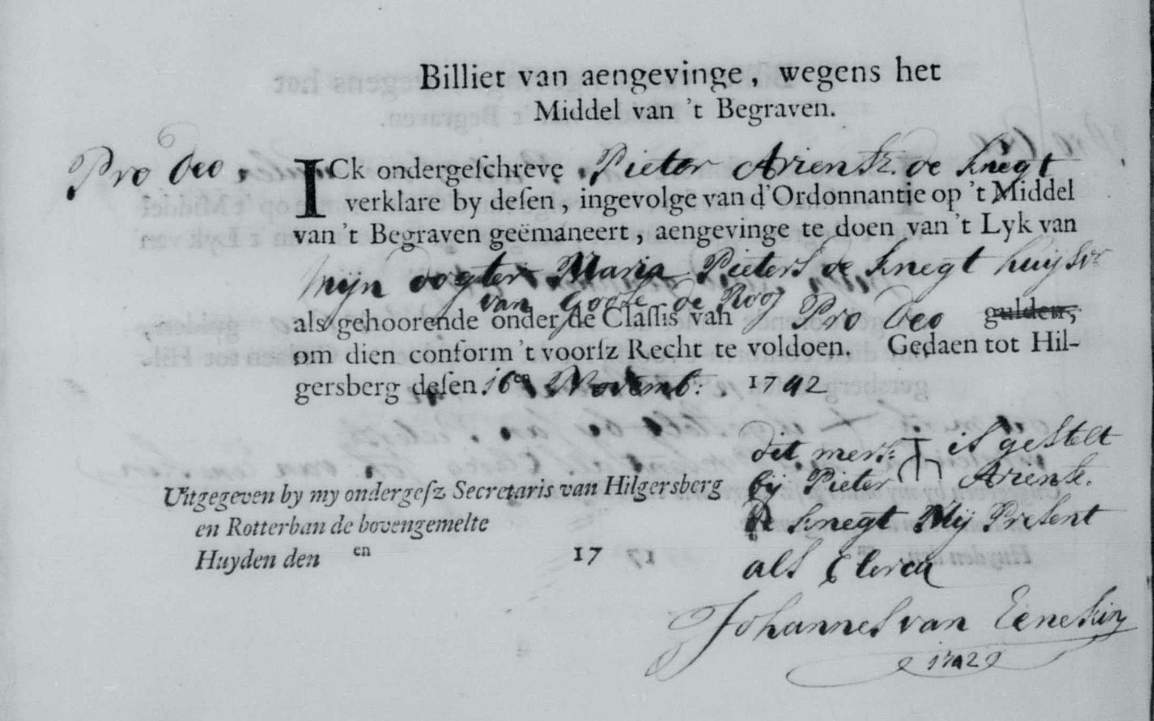 Billiet van aengevinge, wegens het
Middel van 't Begraven.
Pro Deo, ICk ondergeschreve Pieter Ariensz. de Knegt
verklare by desen, ingevolge van d'Ordonnantie op 't Middel
van 't Begraven geëmaneert, aengevinge te doen van 't Lyk van
mijn dogter Maria Pieters de Knegt huijsvr
van de Rooj
als gehoorende onder de Classis van Pro Deo gulden,
om dien conform 't voorsz Recht te voldoen. Gedaen tot Hil-
gersberg desen 16en Novemb: 1742
dit merk is gestelt
bij Pieter Ariensz.
de Knegt Mij Present
als Clercq
Johannes van
1742
Uitgegeven by my ondergesz Secretaris van Hilgersberg
en Rotterban de bovengemelte
Huyden den en 17